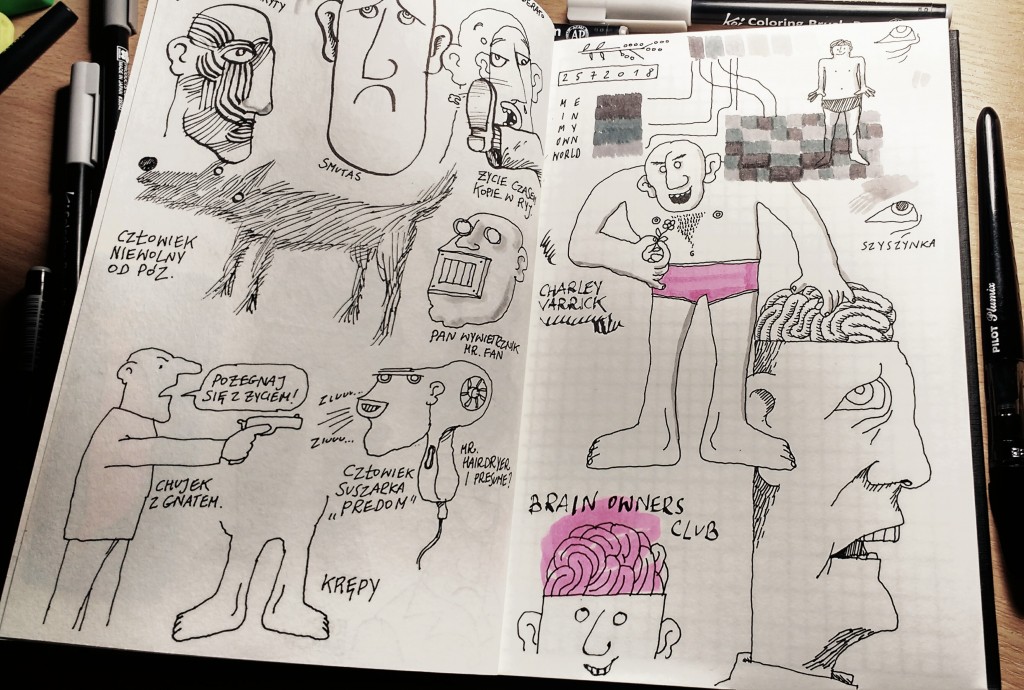 SMUTAS
ŻYCIE CZASEM
KOPIE W RYJ.
CZŁOWIEK
NIEWOLNY
OD PÓZ.
PAN WYWIETRZNIK
MR. FAN
POŻEGNAJ
SIĘ Z ŻYCIEM!
CHUJEK
Z GNATEM.
ZIUUU...
ZIUUU...
CZŁOWIEK
SUSZARKA
„PREDOM"
MR.
HAIRDRYER
I PRESUME?
KRĘPY
2572018
ME
IN
MY
OWN
WORLD
SZYSZYNKA
CHARLEY
VARRICK
BRAIN OWNERS
CLUB
Koi Coloring Brush
PILOT Plumix